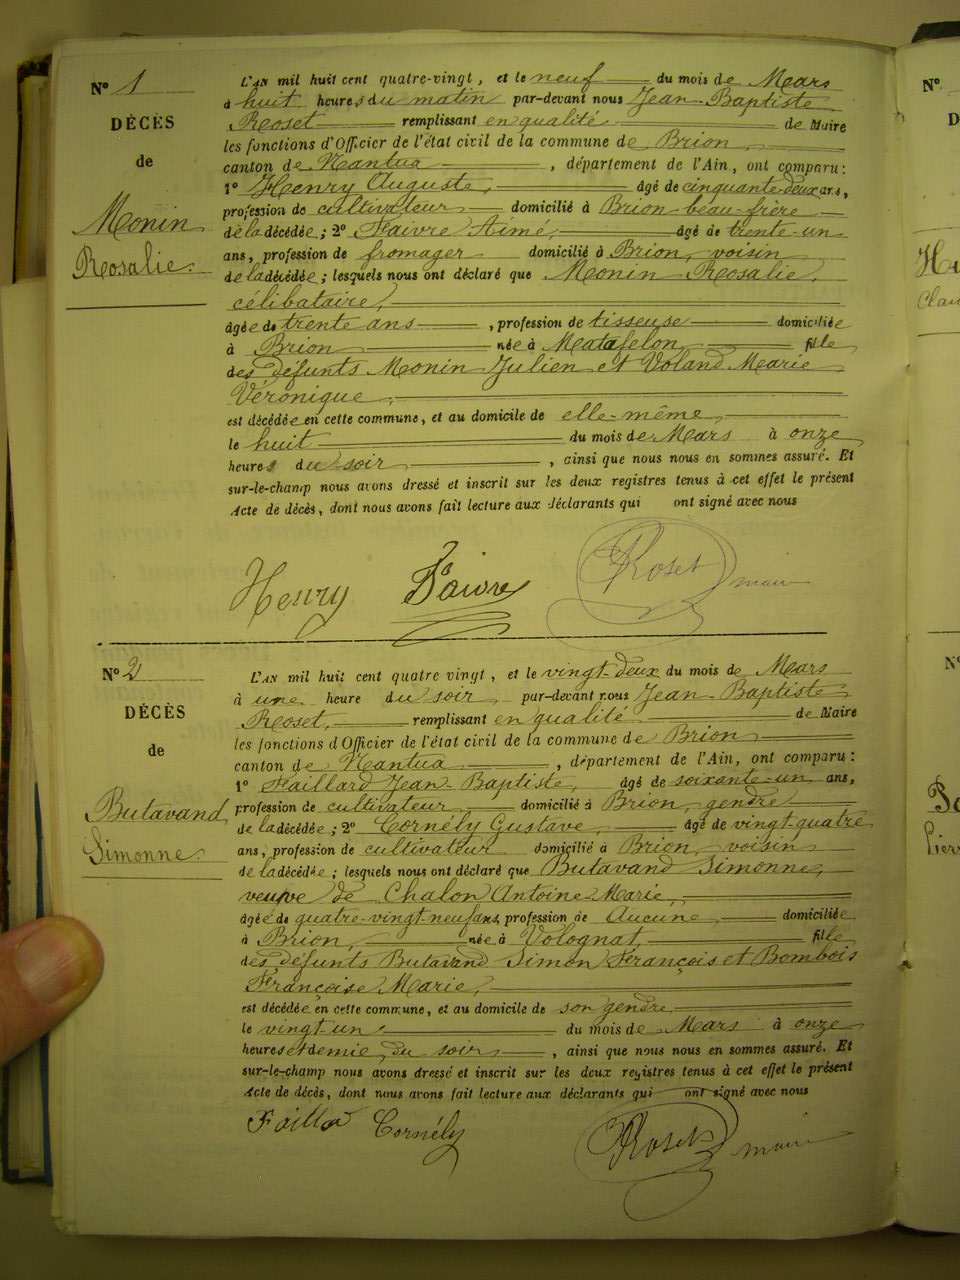 Nº 1
DÉCÈS
de
Monin
Rosalie.
L'AN mil huit cent quatre-vingt, et le neuf du mois de Mars
à huit heures du matin par-devant nous Jean Baptiste
Roset remplissant en qualité de Maire
les fonctions d'Officier de l'état civil de la commune de Brion
canton de Nantua, département de l'Ain, ont comparu:
1º Henry Auguste, âgé de cinquante-deux ans,
profession de cultivateur domicilié à Brion beau-frère
de la décédée; 2º Faivre Aimé, âgé de trente-un
ans, profession de fromager domicilié à Brion, voisin
de la décédée; lesquels nous ont déclaré que Monin Rosalie,
célibataire,
âgée de trente ans, profession de tisseuse domiciliée
à Brion née à Matafelon, fille
des défunts Monin Julien et Voland Marie
Véronique,
est décédée en cette commune, et au domicile de elle-même,
le huit du mois de Mars à onze
heures du soir, ainsi que nous nous en sommes assuré. Et
sur-le-champ nous avons dressé et inscrit sur les deux registres tenus à cet effet le présent
Acte de décès, dont nous avons fait lecture aux déclarants qui ont signé avec nous
Henry Faivre Roset maire
Nº 2
DÉCÈS
de
Butavand
Simonne.
L'AN mil huit cent quatre vingt, et le vingt-deux du mois de Mars
à une heure du soir par-devant nous Jean-Baptiste
Roset, remplissant en qualité de Maire
les fonctions d'Officier de l'état civil de la commune de Brion
canton de Nantua, département de l'Ain, ont comparu:
1º Faillard Jean-Baptiste, âgé de soixante-un ans,
profession de cultivateur domicilié à Brion, gendre
de la décédée; 2º Cornély Gustave, âgé de vingt-quatre
ans, profession de cultivateur domicilié à Brion, voisin
de la décédée; lesquels nous ont déclaré que Butavand Simonne,
veuve de Chalon Antoine-Marie,
âgée de quatre-vingt-neuf ans, profession de Aucune domiciliée
à Brion, née à Volognat, fille
des défunts Butavand Simon François et Bombois
Françoise Marie,
est décédée en cette commune, et au domicile de son gendre
le vingt-un du mois de Mars à onze
heures et demie du soir, ainsi que nous nous en sommes assuré. Et
sur-le-champ nous avons dressé et inscrit sur les deux registres tenus à cet effet le présent
Acte de décès, dont nous avons fait lecture aux déclarants qui ont signé avec nous
Cornély Roset maire
Nº